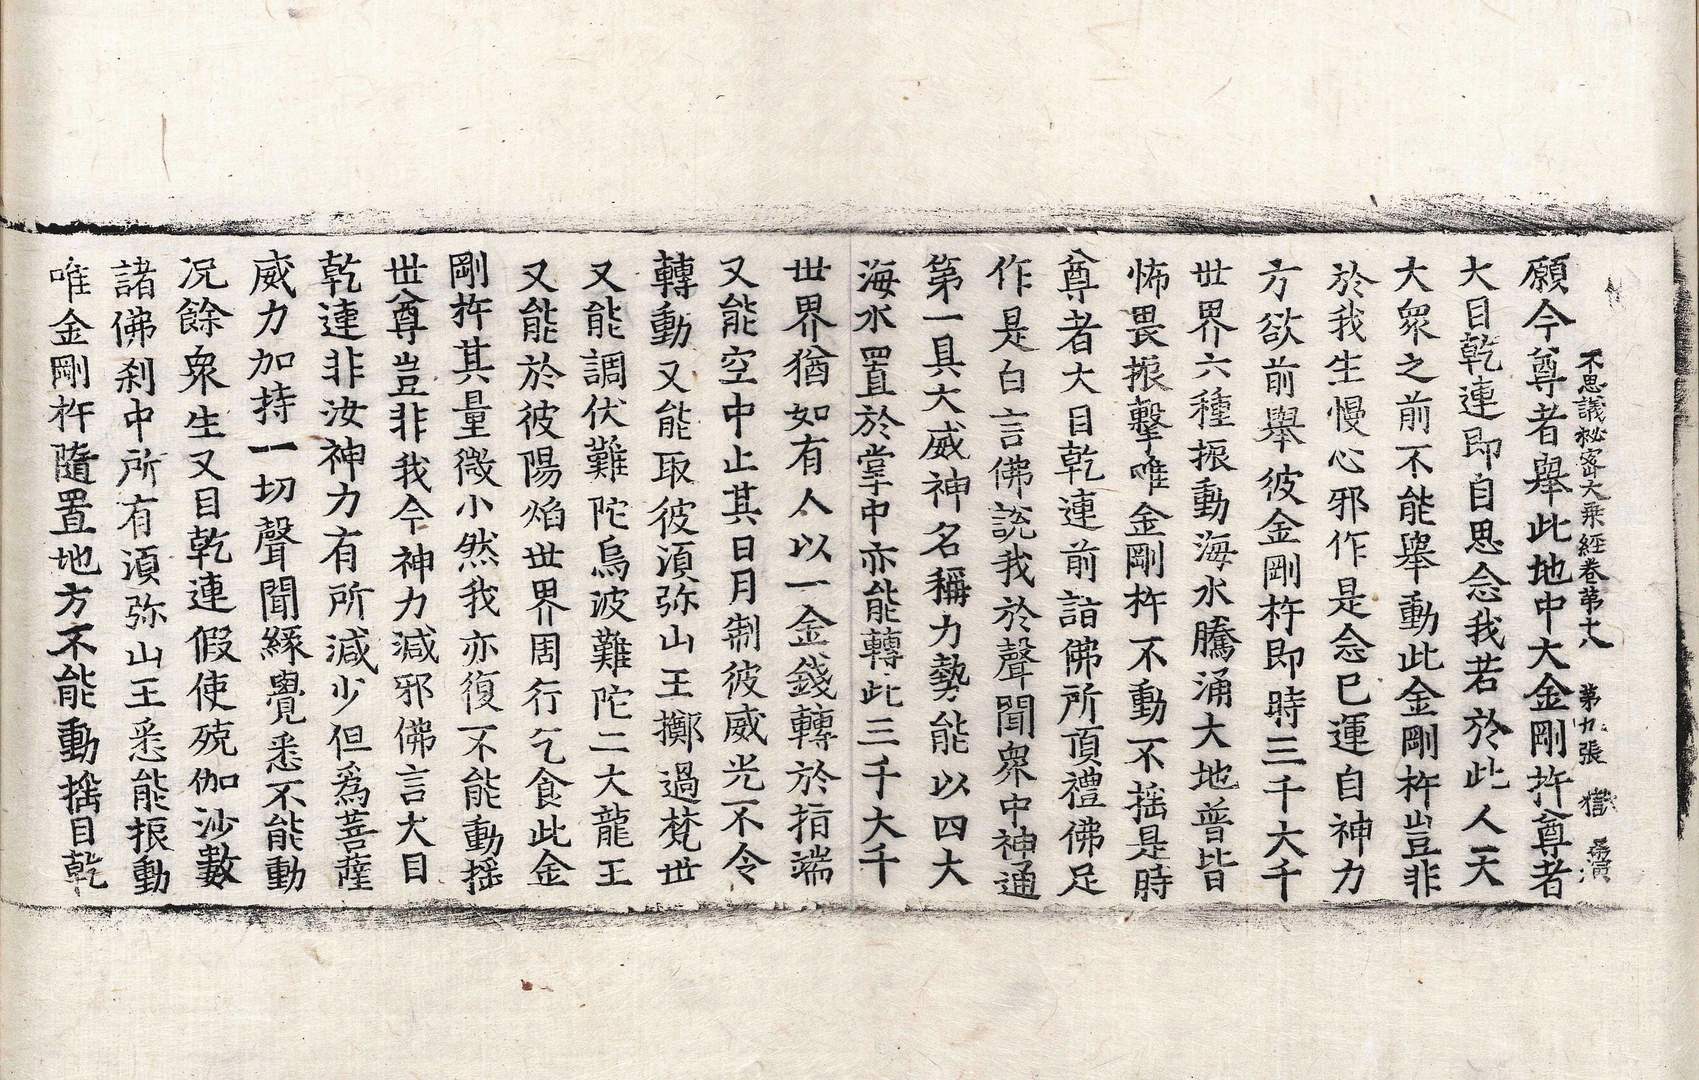 不思議秘密大乘經卷第十八 第九張 獄
願今尊者舉此地中大金剛杵尊者
大目乾連即自思念我若於此人天
大衆之前不能舉動此金剛杵豈非
於我生慢心邪作是念已運自神力
方欲前舉彼金剛杵即時三千大千
世界六種振動海水騰涌大地普皆
怖畏振擊唯金剛杵不動不搖是時
尊者大目乾連前詣佛所頂禮佛足
作是白言佛說我於聲聞衆中神通
第一具大威神名稱力勢能以四大
海水置於掌中亦能轉此三千大千
世界猶如有人以一金錢轉於指端
又能空中止其日月制彼威光不令
轉動又能取彼湏弥山王擲過梵世
又能調伏難陀烏波難陀二大龍王
又能於彼陽焰世界周行乞食此金
剛杵其量微小然我亦復不能動搖
世尊豈非我今神力減邪佛言大目
乾連非汝神力有所減少但爲菩薩
威力加持一切聲聞緣覺悉不能動
况餘衆生又目乾連假使殑伽沙數
諸佛刹中所有湏弥山王悉能振動
唯金剛杵隨置地方不能動搖目乾